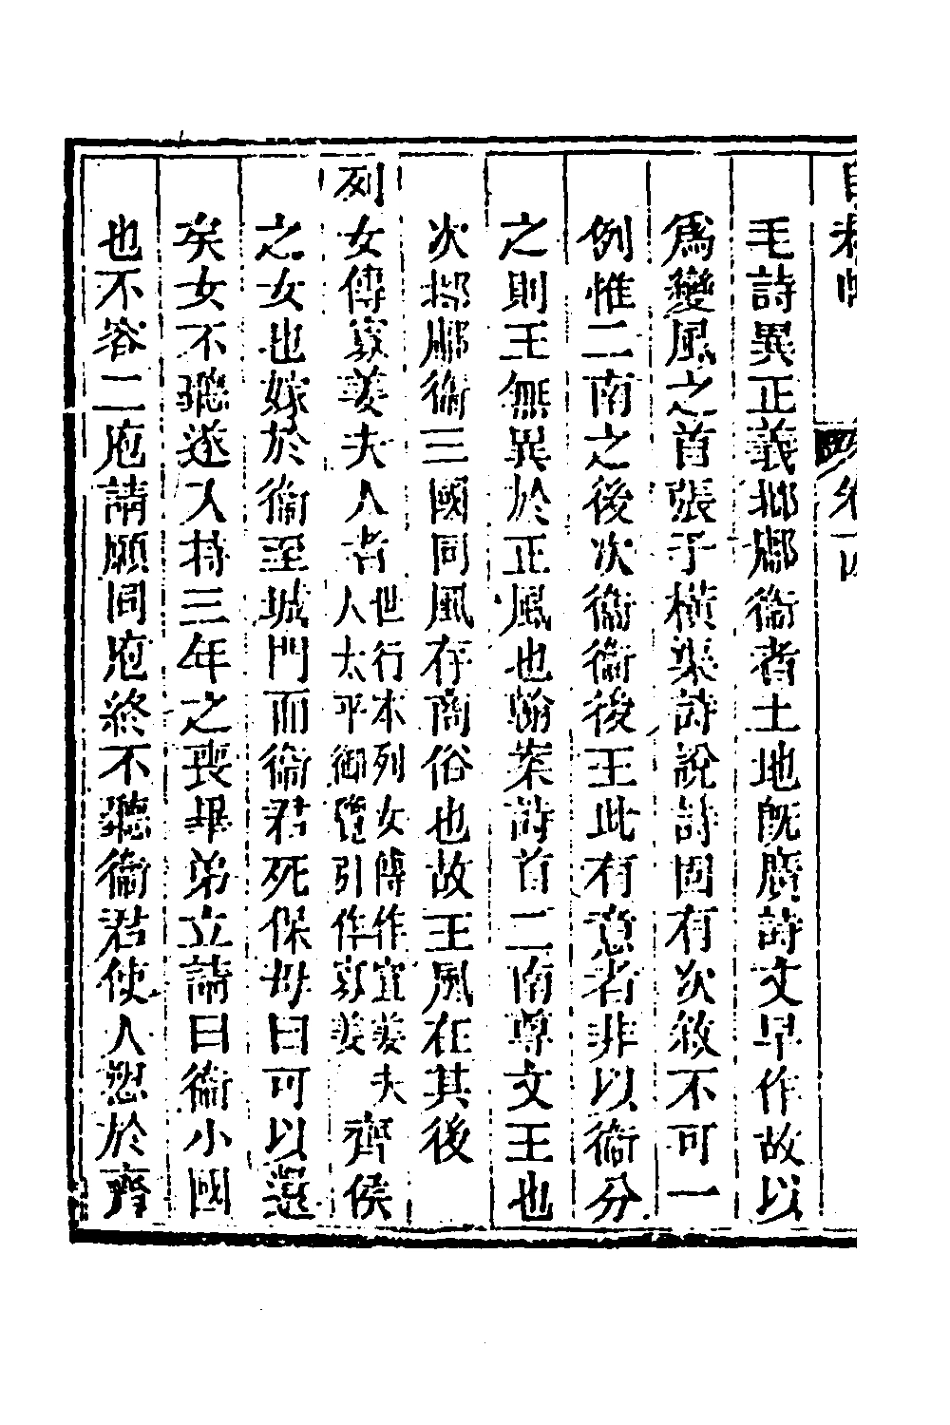 毛詩異正義邶鄘衛者土地既廣詩文早作故以
爲變風之首張子橫渠詩說詩固有次敘不可一
例惟二南之後次衛衛後王此有意者非以衛分
之則王無異於正風也翰案詩首二南尊文王也
次邶鄘衛三國同風存商俗也故王風在其後
列女傳寡姜夫人者世行本列女傳作宣姜夫人太平御覽引作寡姜齊侯
之女也嫁於衛至城門而衛君死保母曰可以還
矣女不聽遂入持三年之喪畢弟立請曰衛小國
也不容二庖請願同庖終不聽衛君使人愬於齊